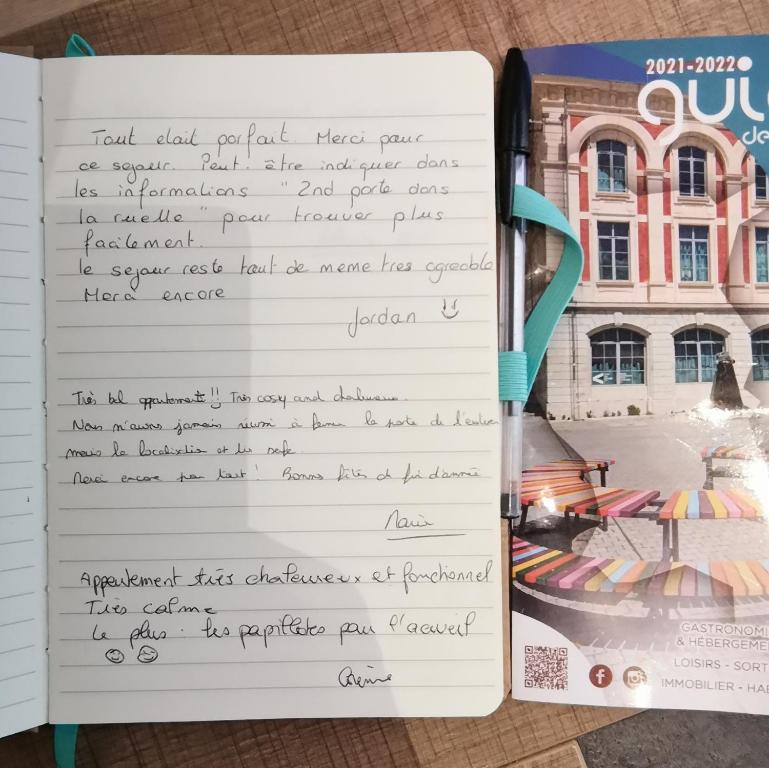 Tout etait parfait. Merci pour
ce sejour. Peut. être indiquer dans
les informations " 2nd porte dans
la ruelle " pour trouver plus
facilement.
le sejour reste tout de meme tres agreable
Merci encore
Jordan
Très bel appartement !! Très cosy and chaleureux.
Nous n'avons jamais réussi à fermer la porte de l'entrée
mais la localisation et
Merci encore pour tout ! Bonnes fêtes de fin d'année
Marie
Appartement très chaleureux et fonctionnel
Très calme
Le plus : les papillotes pour l'acceuil
2021-2022
gui
de
GASTRONOMI
& HÉBERGEME
LOISIRS - SORT
IMMOBILIER - HA